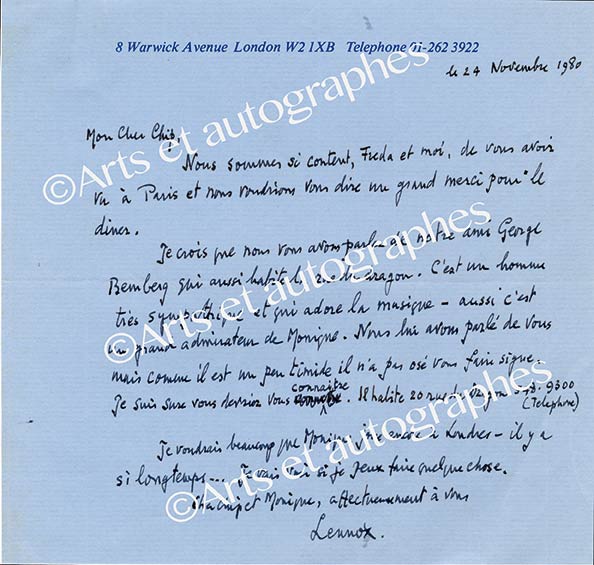 8 Warwick Avenue London W2 1XB Telephone 01-262 3922
le 24 Novembre 1980
Mon Cher Chip,
Nous sommes si content, Freda et moi, de vous avoir
vu à Paris et nous voudrions vous dire un grand merci pour le
diner.
Je crois que nous vous avons parlé de notre ami George
Bemberg qui aussi habite la rue du Dragon. C'est un homme
très sympathique et qui adore la musique – aussi c'est
un grand admirateur de Monique. Nous lui avons parlé de vous
mais comme il est un peu timide il n'a pas osé vous faire signe.
Je suis sure vous devriez vous connaitre. Il habite 20 rue du Dragon 9300
(Telephone)
Je voudrais beaucoup que Monique joue encore à Londres – il y a
si longtemps... Je vais voir si je peux faire quelque chose.
et Monique, affectueusement à vous
Lennox.
©Arts et autographes
©Arts et autographes
©Arts et autographes